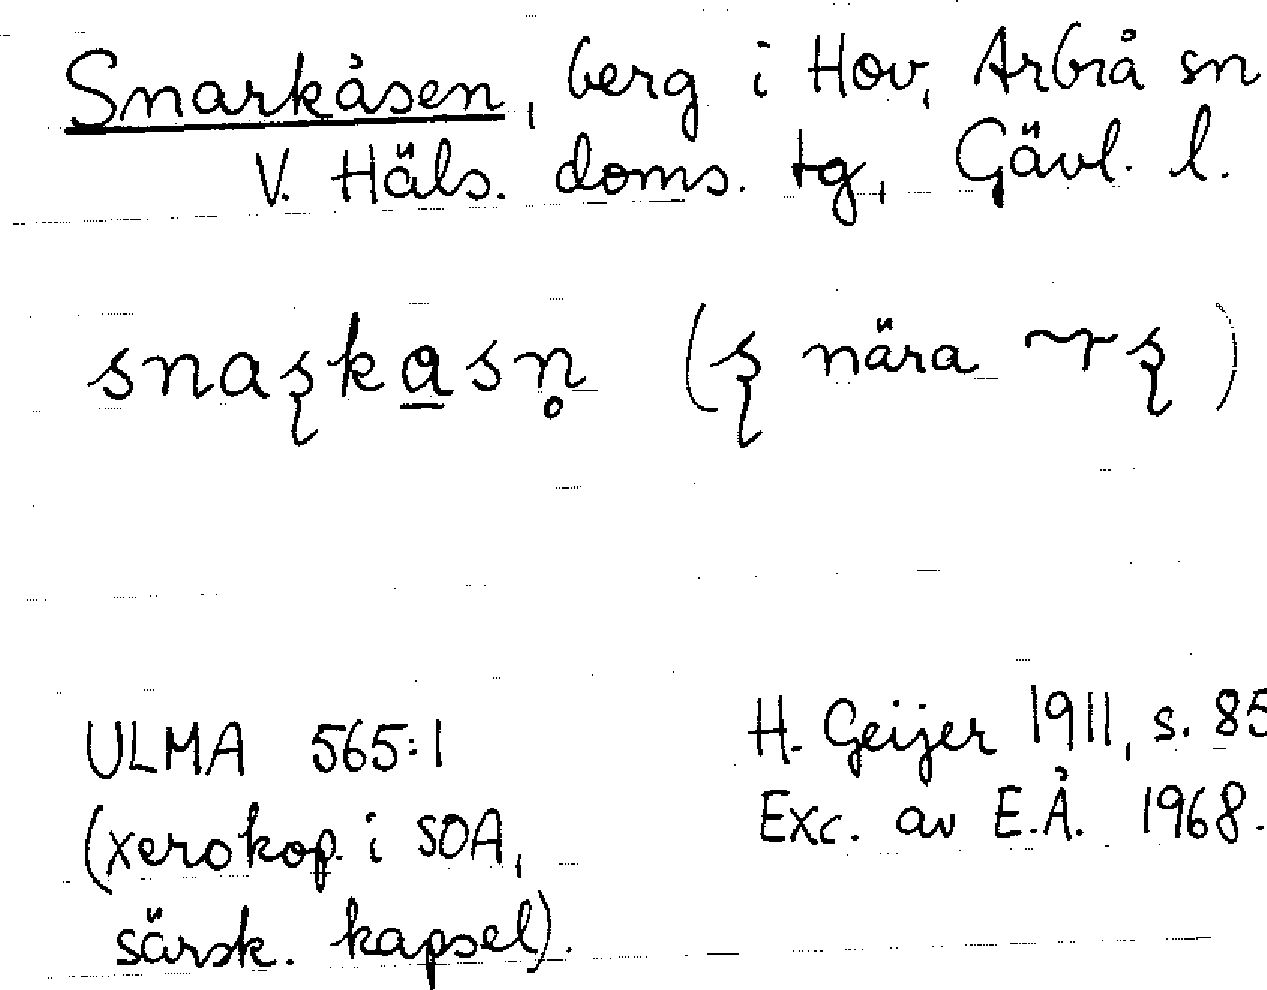 Snarkåsen, berg i Hov, Arbrå sn
V. Häls. doms. tg, Gävl. l.
snaʂkasn̥ (ʂ nära ~rʂ)
ULMA 565:1
(xerokop. i SOA,
särsk. kapsel).
H. Geijer 1911, s. 85
Exc. av E.Å. 1968.